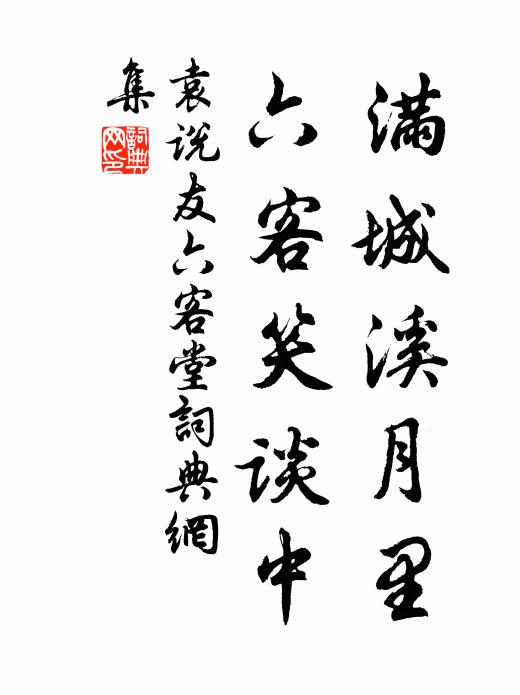 满城溪月里
六客笑谈中
袁说友六客堂詞典網
集
詞典
网印